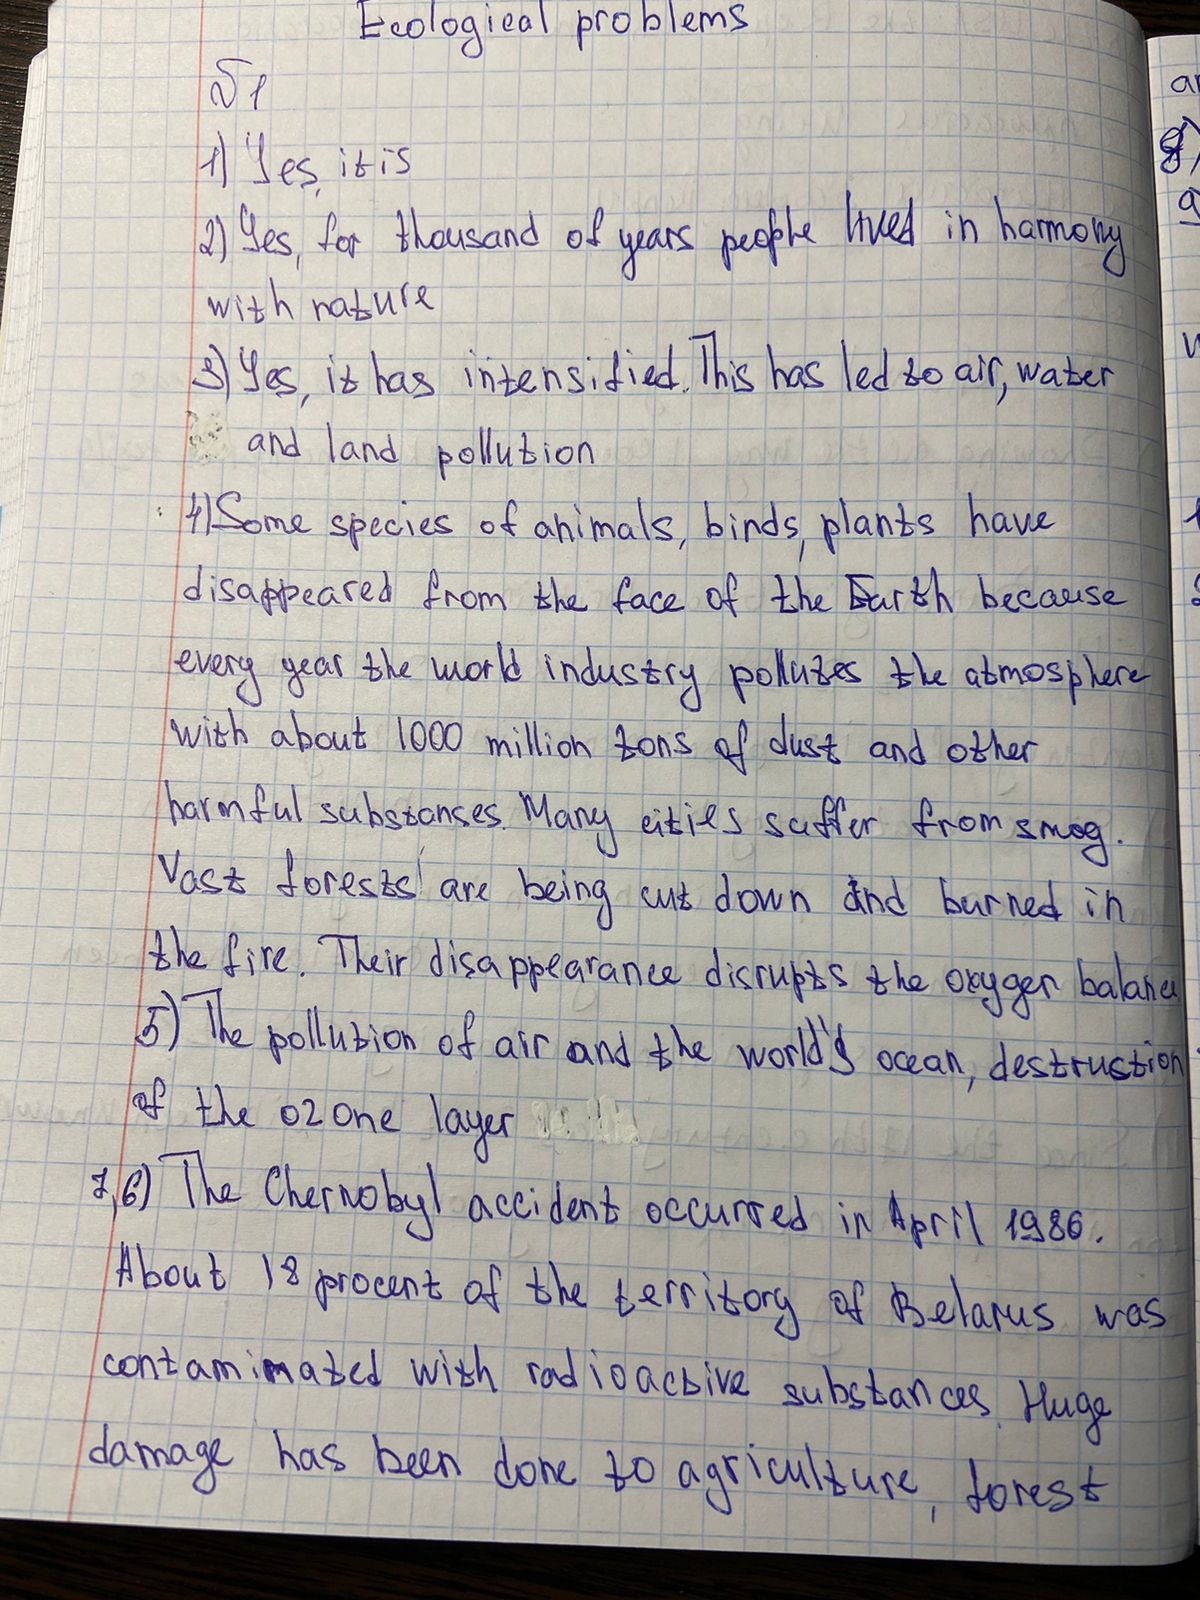 Ecological problems
№1
1) Yes, it is
2) Yes, for thousand of years people lived in harmony
with nature
3) Yes, it has intensified. This has led to air, water
and land pollution
4) Some species of animals, binds, plants have
disappeared from the face of the Earth because
every year the world industry pollutes the atmosphere
with about 1000 million tons of dust and other
harmful substanses. Many cities suffer from smog.
Vast forests are being cut down and burned in
the fire. Their disappearance disrupts the oxygen balance
5) The pollution of air and the world's ocean, destruction
of the ozone layer
7,6) The Chernobyl accident occurred in April 1986.
About 18 procent of the territory of Belarus was
contaminated with radioactive substances. Huge
damage has been done to agriculture, forest